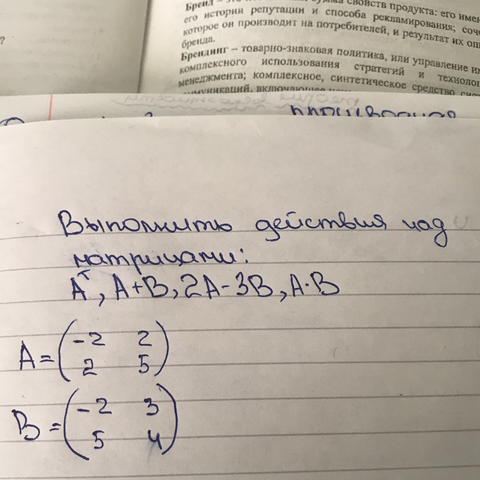 ?
Бренд – это
свойств продукта: его имени
его истории репутации и способа рекламирования; соч
которое он производит на потребителей, и результат их оп
бренда.
Брендинг – товарно-знаковая политика, или управление
комплексного использования стратегий и технолог
менеджмента; комплексное, синтетическое средство
Выполнить действия над
матрицами:
Aᵀ, A+B, 2A-3B, A·B
A=(-2 2
2 5)
B=(-2 3
5 4)